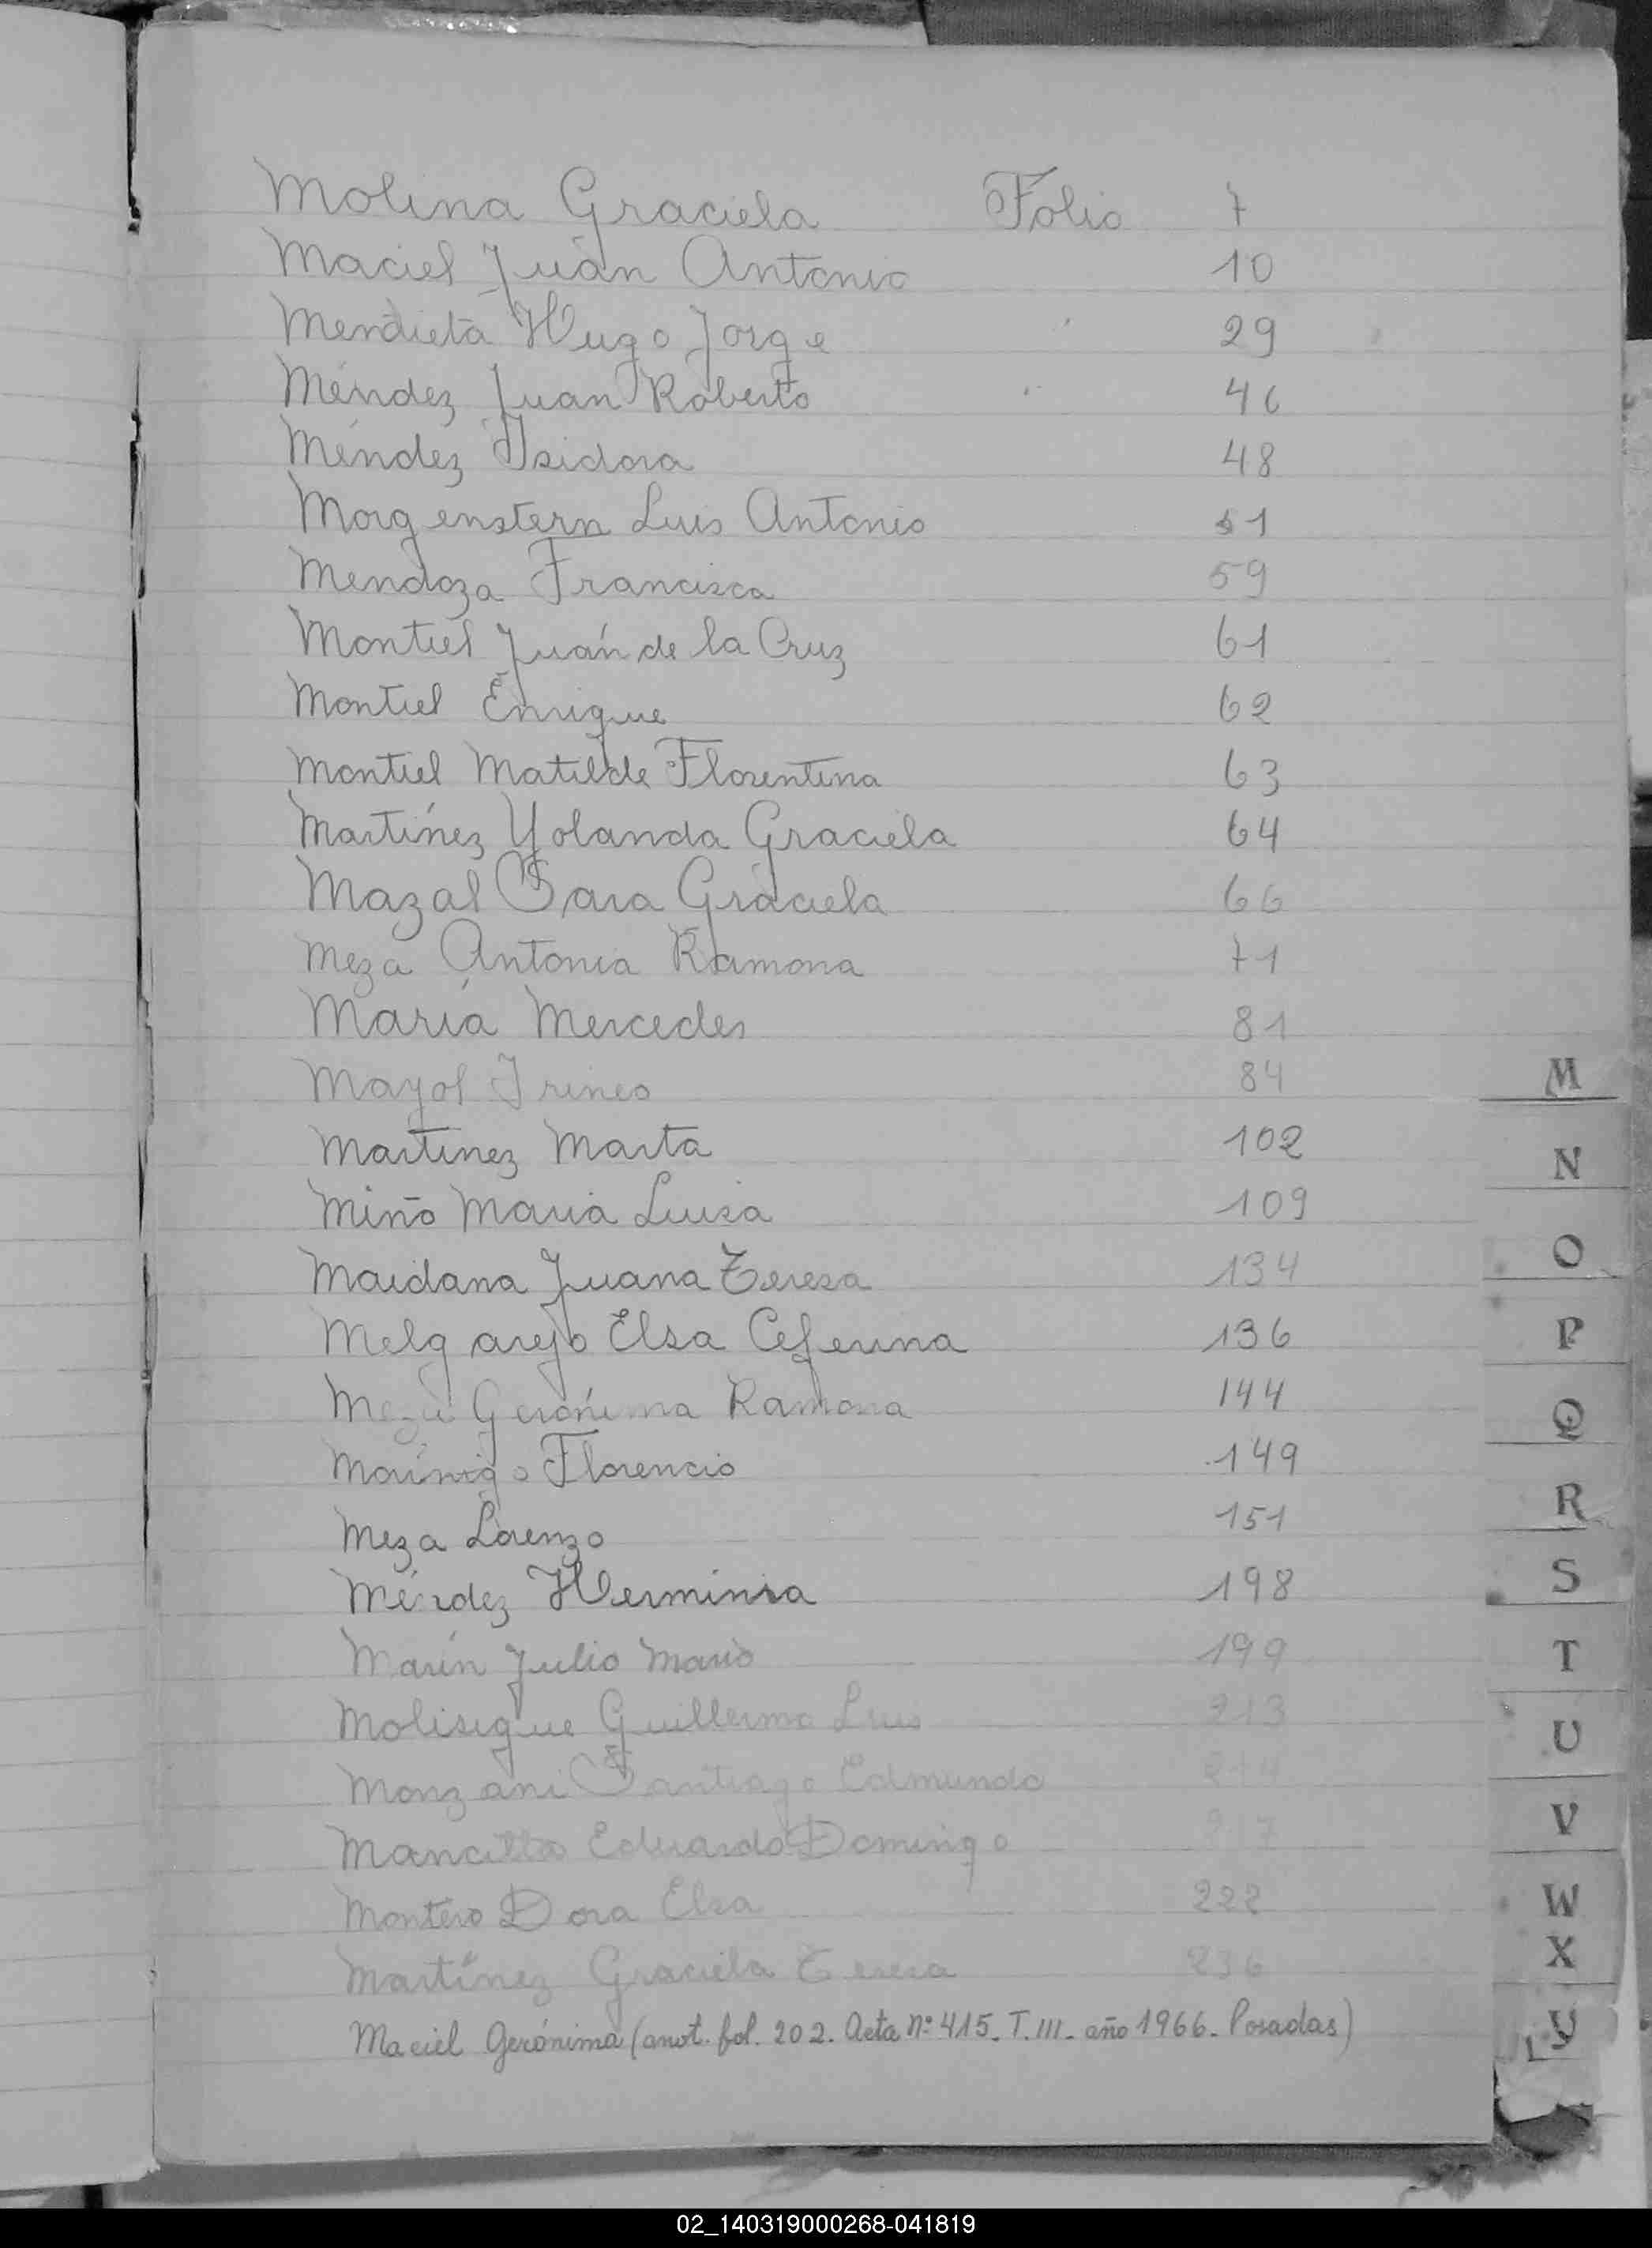 Molina Graciela Folio 7
Maciel Juan Antonio 10
Mendieta Hugo Jorge 29
Méndez Juan Roberto 46
Méndez Isidora 48
Morgenstern Luis Antonio 51
Mendoza Francisca 59
Montiel Juán de la Cruz 61
Montiel Enrique 62
Montiel Matilde Florentina 63
Martínez Yolanda Graciela 64
Mazal Sara Graciela 66
Meza Antonia Ramona 71
María Mercedes 81
Mayol Irineo 84
Martinez Marta 102
Miño Maria Luisa 109
Maidana Juana Teresa 134
Melgarejo Elsa Ceferina 136
Meza Gerónima Ramona 144
Florencio 149
Meza Lorenzo 151
Méndez Herminia 198
Marin Julio Mario 199
Molisique Guillermo Luis 213
Monzani Santiago Edmundo 214
Mancilla Eduardo Domingo 217
Montero Dora Elsa 222
Martínez Graciela Teresa 236
Maciel Gerónima (anot. fol. 202. Acta nº 415. T. III. año 1966. Posadas)
M
N
O
P
Q
R
S
T
U
V
W
X
Y
02_140319000268-041819